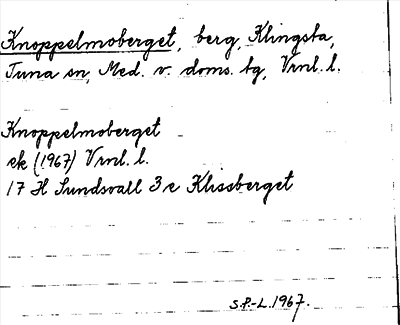 Knoppelmoberget, berg, Klingsta,
Tuna sn, Med. v. doms. tg, Vrnl. l.
Knoppelmoberget
ek (1967) Vrnl. l.
17 H Sundsvall 3 e Klissberget
S.P.-L. 1967.